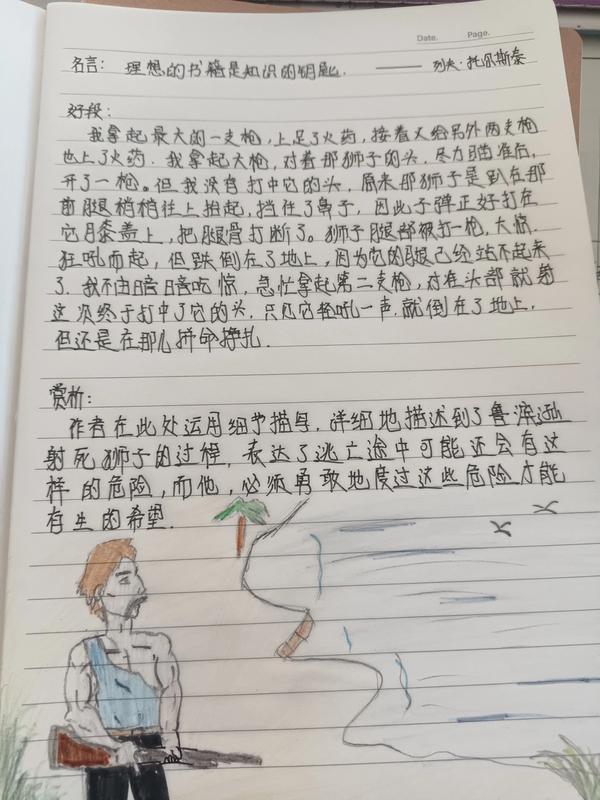 Date. Page.
名言: 理想的书籍是知识的钥匙. —— 列夫·托尔斯泰
好段:
我拿起最大的一支枪,上足了火药,接着又给另外两支枪
也上了火药. 我拿起大枪,对着那狮子的头,尽力瞄准后,
开了一枪。但我没有打中它的头,原来那狮子是趴在那
前腿稍稍往上抬起,挡住了鼻子,因此子弹正好打在
它膝盖上,把腿骨打断了。狮子腿部被打一枪,大惊.
狂吼而起,但跌倒在了地上,因为它的腿已经站不起来
了.我不由暗暗吃惊,急忙拿起第二支枪,对准头部就射
这次终于打中了它的头.只见它轻吼一声.就倒在了地上,
但还是在那儿拼命挣扎.
赏析:
作者在此处运用细节描写,详细地描述到了鲁滨逊
射死狮子的过程,表达了逃亡途中可能还会有这
样的危险,而他,必须勇敢地度过这些危险才能
有生的希望.